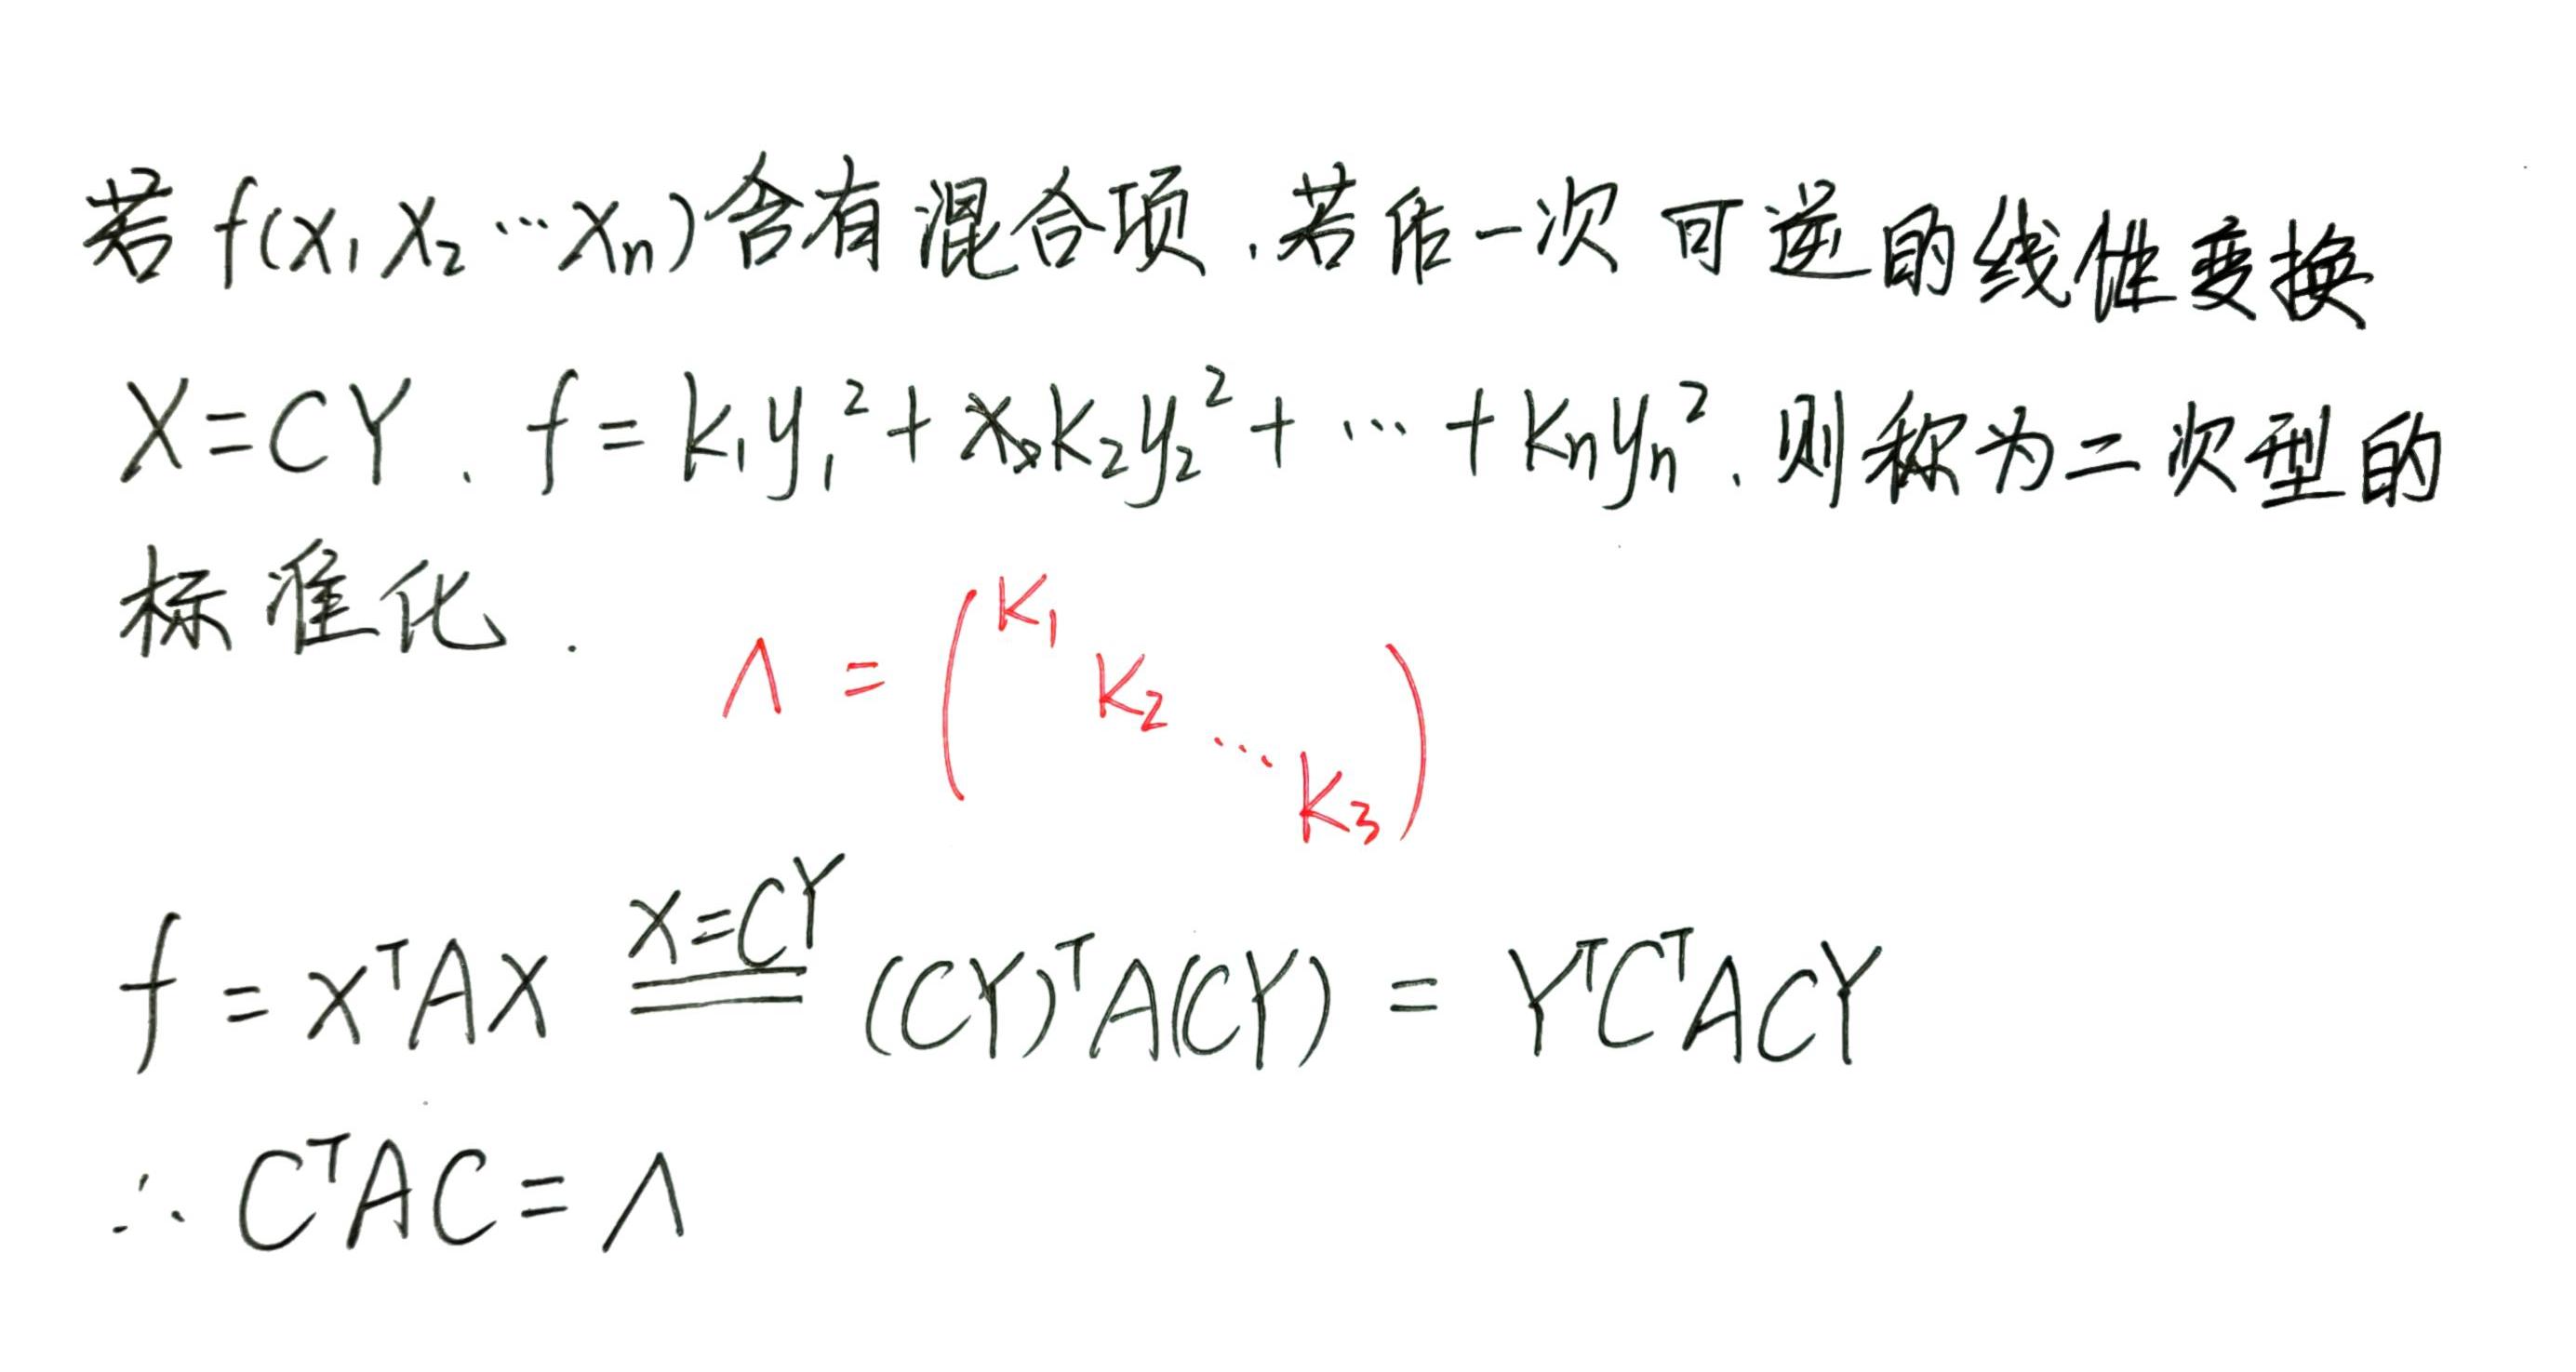 若 f(x₁ x₂ … xₙ) 含有混合项.若作一次可逆的线性变换
X=CY. f = k₁y₁² + k₂y₂² + … + kₙyₙ². 则称为二次型的
标准化.
Λ = (K₁ K₂ ⋱ K₃)
f = XᵀAX X=CY (CY)ᵀA(CY) = YᵀCᵀACY
∴ CᵀAC = Λ